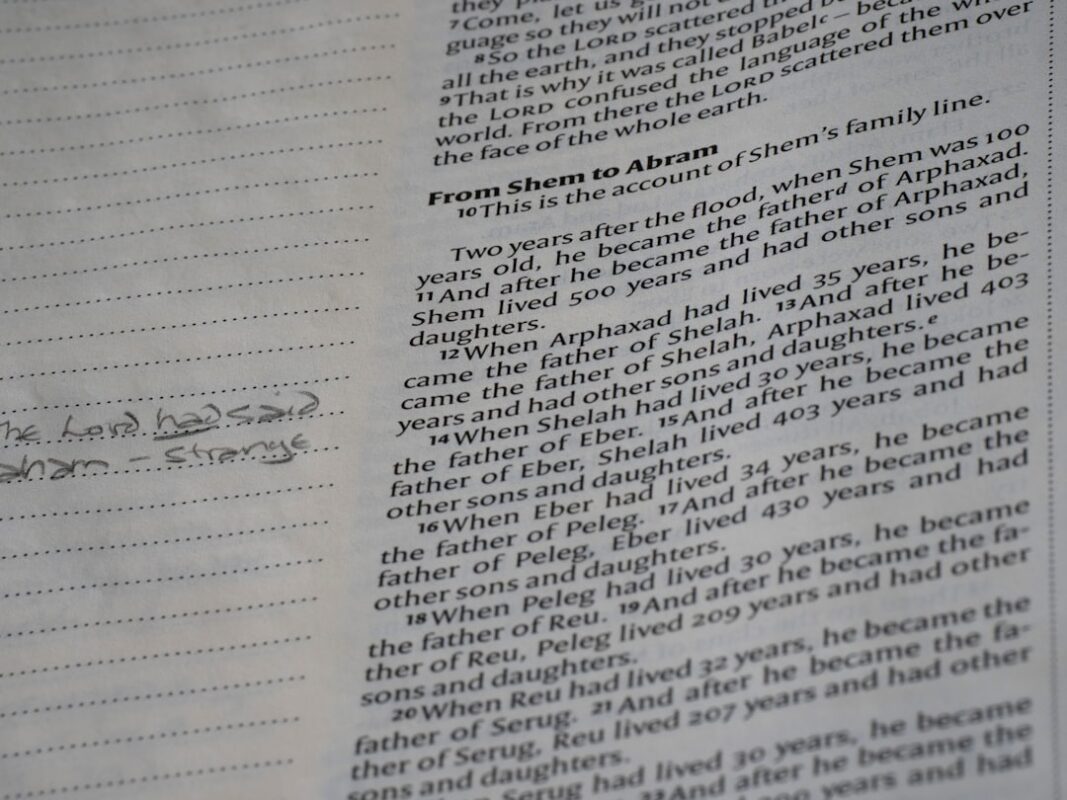 7 Come, let us
guage so they will not
8 So the LORD scattered
all the earth, and they stopped
9 That is why it was called Babelc – because
the LORD confused the language of the whole
world. From there the LORD scattered them over
the face of the whole earth.
From Shem to Abram
10 This is the account of Shem's family line.
Two years after the flood, when Shem was 100
years old, he became the fatherd of Arphaxad.
11 And after he became the father of Arphaxad,
Shem lived 500 years and had other sons and
daughters.
12 When Arphaxad had lived 35 years, he be-
came the father of Shelah. 13 And after he be-
came the father of Shelah, Arphaxad lived 403
years and had other sons and daughters.e
14 When Shelah had lived 30 years, he became
the father of Eber. 15 And after he became the
father of Eber, Shelah lived 403 years and had
other sons and daughters.
16 When Eber had lived 34 years, he became
the father of Peleg. 17 And after he became the
father of Peleg, Eber lived 430 years and had
other sons and daughters.
18 When Peleg had lived 30 years, he became
the father of Reu. 19 And after he became the fa-
ther of Reu, Peleg lived 209 years and had other
sons and daughters.
20 When Reu had lived 32 years, he became the
father of Serug. 21 And after he became the fa-
ther of Serug, Reu lived 207 years and had other
sons and daughters.
Serug had lived 30 years, he became
And after he became the
years and had
he Lord had said
aham – strange